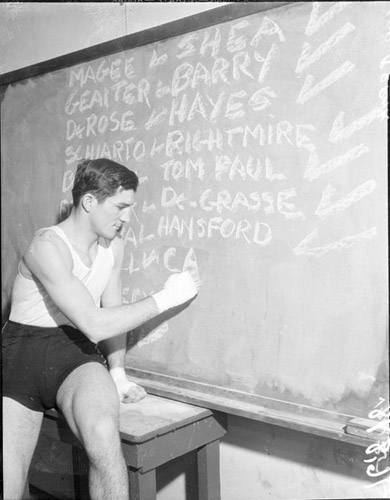 MAGEE & SHEA
GEAITER & BARRY
DEROSE & HAYES
SCHIARTO & RIGHTMIRE
TOM PAUL
& DE-GRASSE
HANSFORD
LUCA